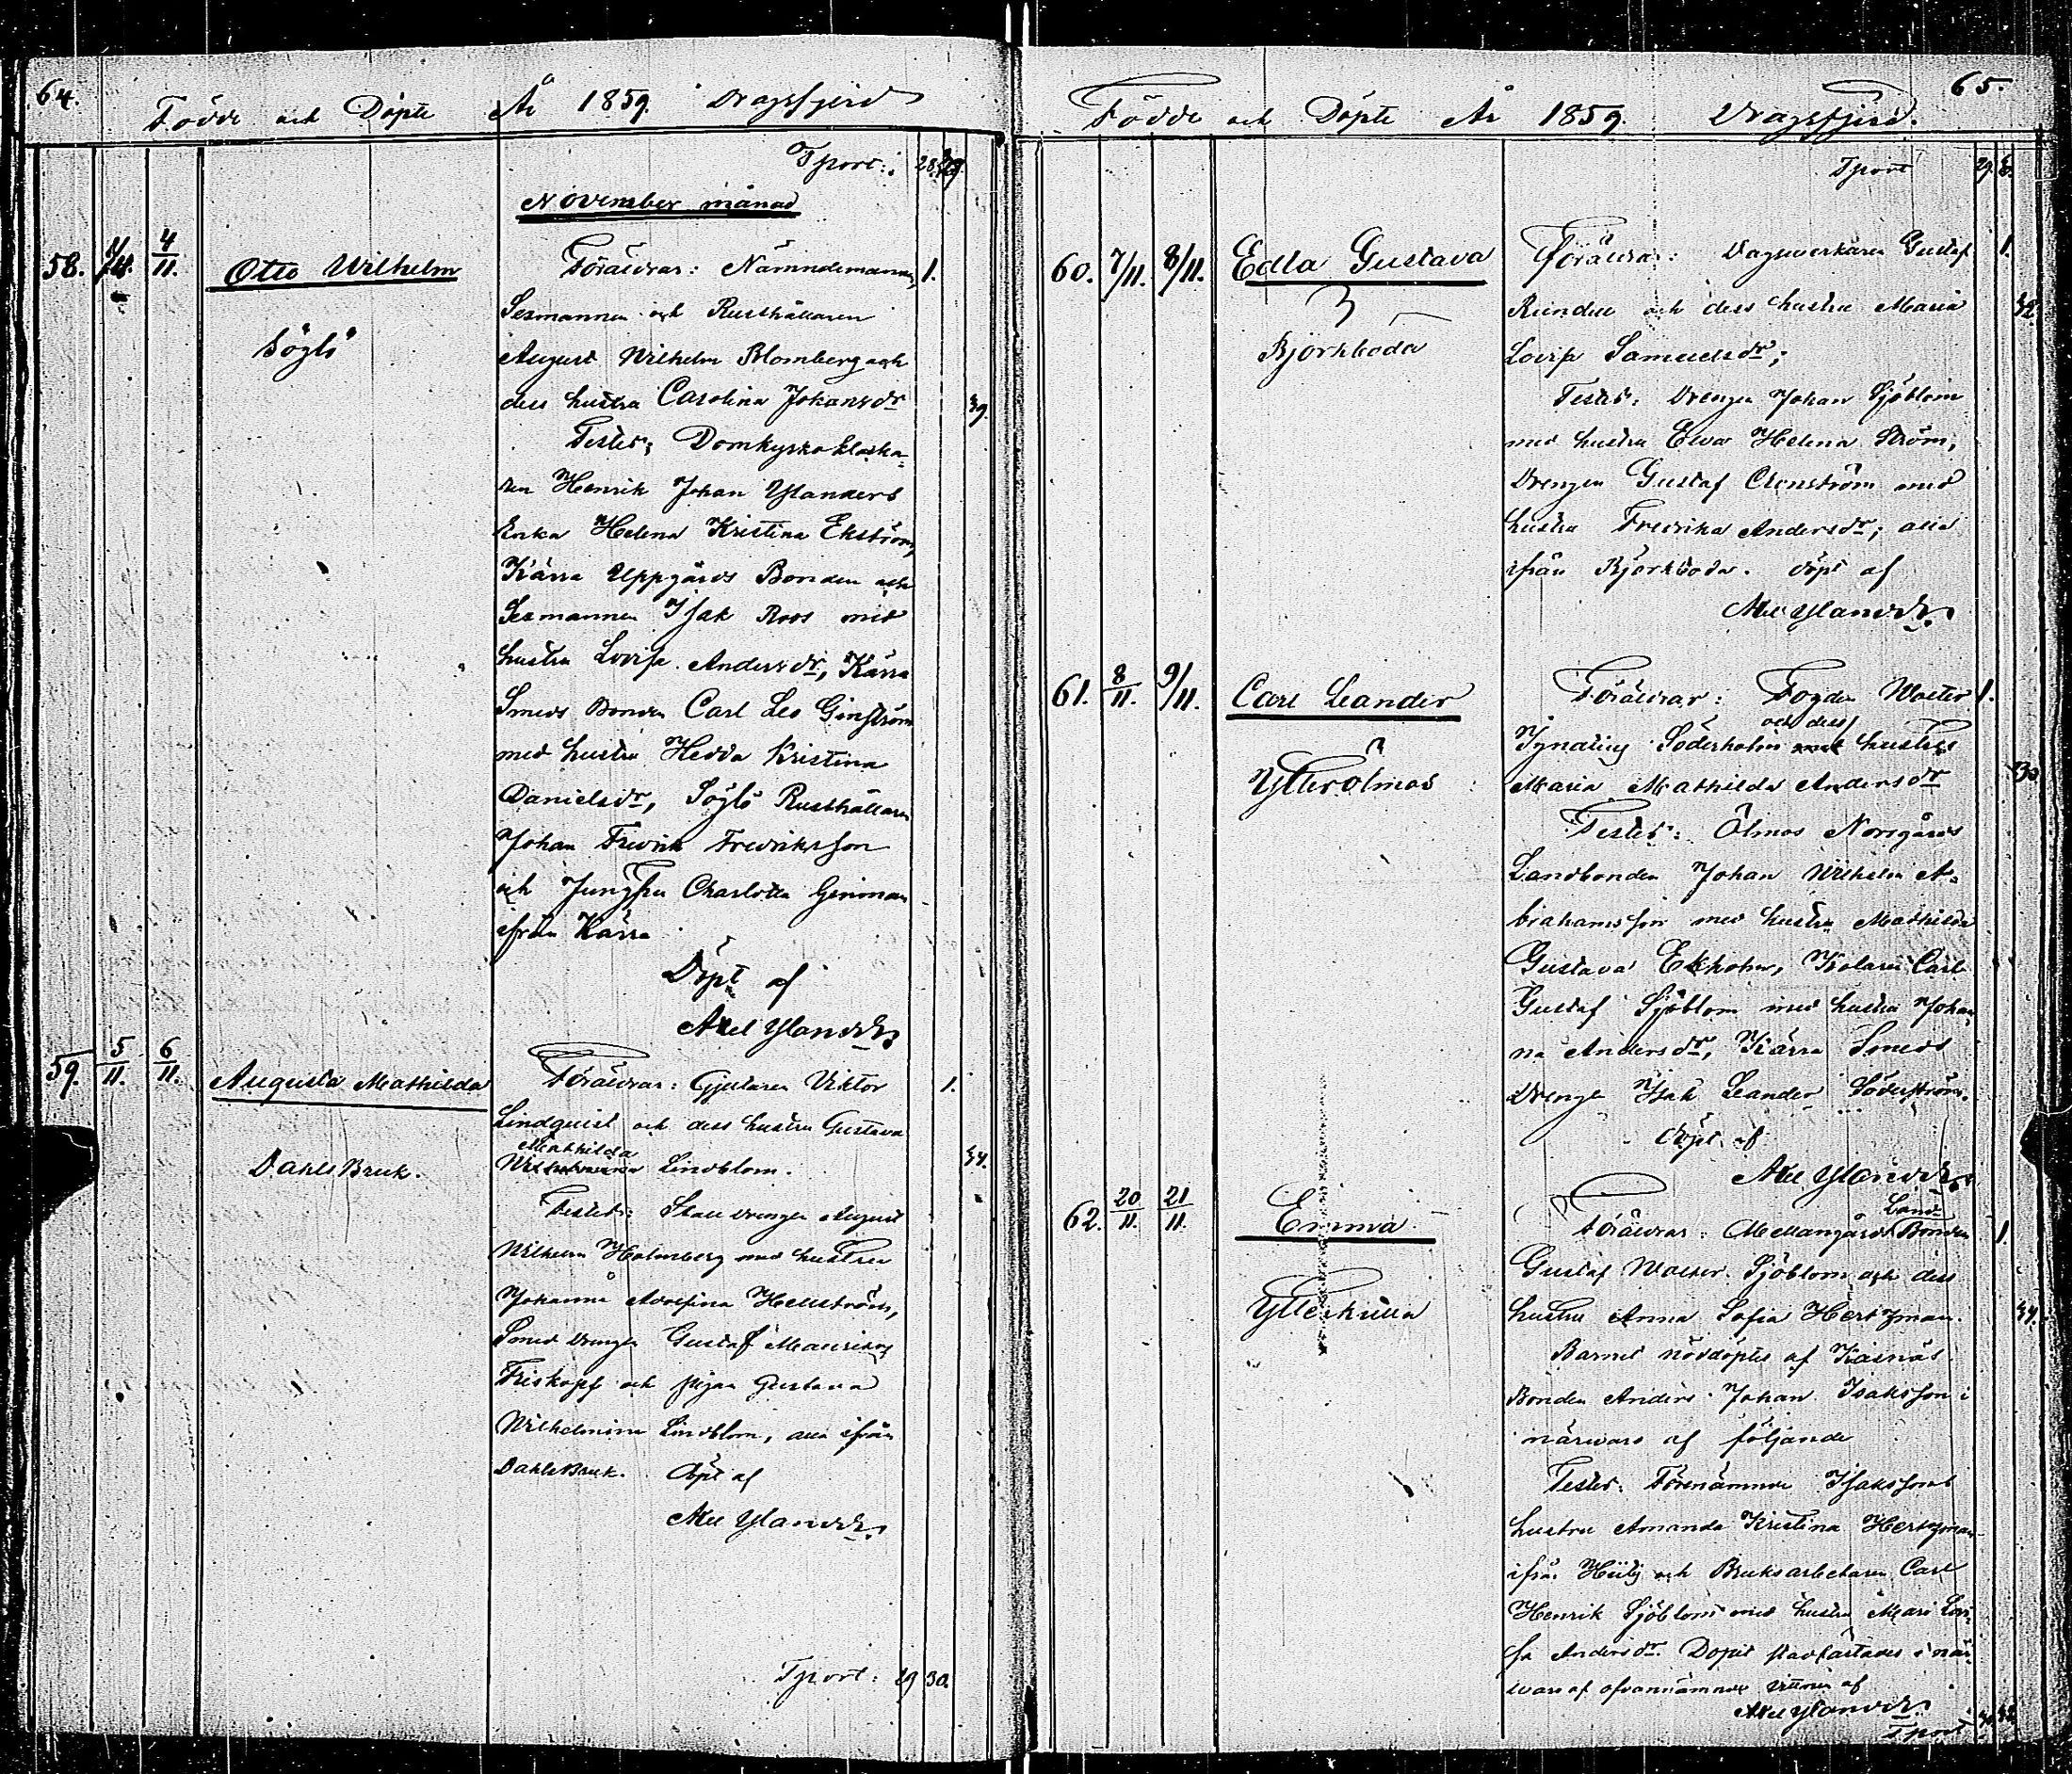 64.
Födde och Döpte År 1859. Dragsfjerd
Tport:. 28. 29.
November månad
58. 4/11. Otto Wilhelm Föräldrar: Nämndemannen, 1.
Sexmannen och Rusthållaren
Söglö August Wilhelm Blomberg och
dess hustru Carolina Johansdr 39.
Testes: Domkyrko klocka-
ren Henrik Johan Ylanders
Enka Helena Kristina Ekström,
Kärra Uppgårds Bonden och
Sexmannen Isak Roos med
hustru Lovisa Andersdr, Kärra
Smeds Bonden Carl Leo Ginström
med hustru Hedda Kristina
Danielsdr, Söglö Rusthållaren
Johan Fredrik Fredriksson
och Jungfru Charlotta Ginman
ifrån Kärra
Döpt af
Axel Ylander.
59. 5/11. 6/11. Augusta Mathilda Föräldrar: Gjutaren Viktor 1.
Lindquist och dess hustru Gustava
Mathilda
Dahls Bruk. Wilhelmina Lindblom. 34.
Testes: Stalldrengen August
Wilhelm Holmberg med hustru
Johanna Adolfina Hellström,
Smeddrengen Gustaf Mauritz
Friskopf och pigan Gustava
Wilhelmina Lindblom, alla ifrån
Dahls Bruk. Döpt af
Axel Ylander.
Tport: 29 30.
65.
Födde och Döpte År 1859. Dragsfjerd.
Tport 29. 30.
60. 7/11. 8/11. Edla Gustava Föräldrar: Dagsverkaren Gustaf 1.
Reindell och dess hustru Maria 32.
Björkboda Lovisa Samuelsdr;
Testes: Drengen Johan Sjöblom
med hustru Eva Helena Ström,
Drengen Gustaf Clenström med
hustru Fredrika Andersdr; alla
ifrån Björkboda. döpt af
Axel Ylander.
61. 8/11. 9/11. Carl Leander Föräldrar: Fogden Walter 1.
och dess
Ignatius Söderholm med hustru
Ytterölmos Maria Mathilda Andersdr 30.
Testes: Ölmos Norrgårds
Landbonden Johan Wilhelm A-
brahamsson med hustru Mathilda
Gustava Ekholm, Kolaren Carl
Gustaf Sjöblom med hustru Johan
na Andersdr, Kärra Smeds
Drengen Isak Leander Söderström.
döpt af
Axel Ylander.
Land-
62. 20/11. 21/11. Emma Föräldrar: Mellangårds Bonden 1.
Gustaf Walter Sjöblom och dess
Ytterkulla hustru Anna Sofia Hertzman. 34.
Barnet nöddöptes af Kasnäs
Bonden Anders Johan Isaksson i
närvaro af följande
Testes: Förenämnde Isakssons
hustru Amanda Kristina Hertzman
ifrån och Bruksarbetaren Carl
Henrik Sjöblom med hustru Maria Lovi-
sa Andersdr. Dopet stadfästades i när-
varo af ofvannämnde vittnen af
Axel Ylander.
Tport